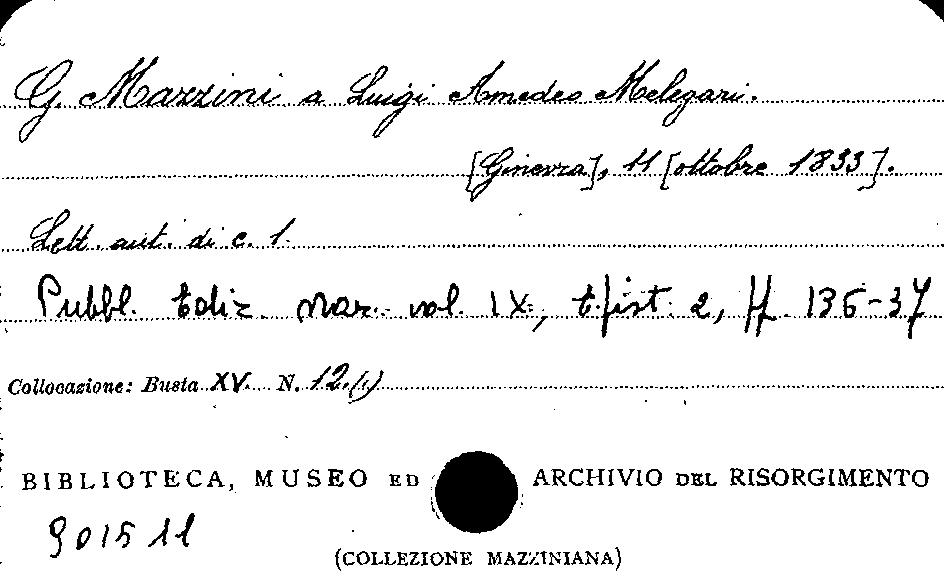 G. Mazzini a Luigi Amedeo Melegari.
[Ginevra], 11 [ottobre 1833].
Lett. aut. di c. 1.
Pubbl. Ediz. Naz. vol. IX, Epist. 2, pp. 136-37
Collocazione: Busta XV. N. 12.(1)
BIBLIOTECA, MUSEO ED ARCHIVIO DEL RISORGIMENTO
901511
(COLLEZIONE MAZZINIANA)